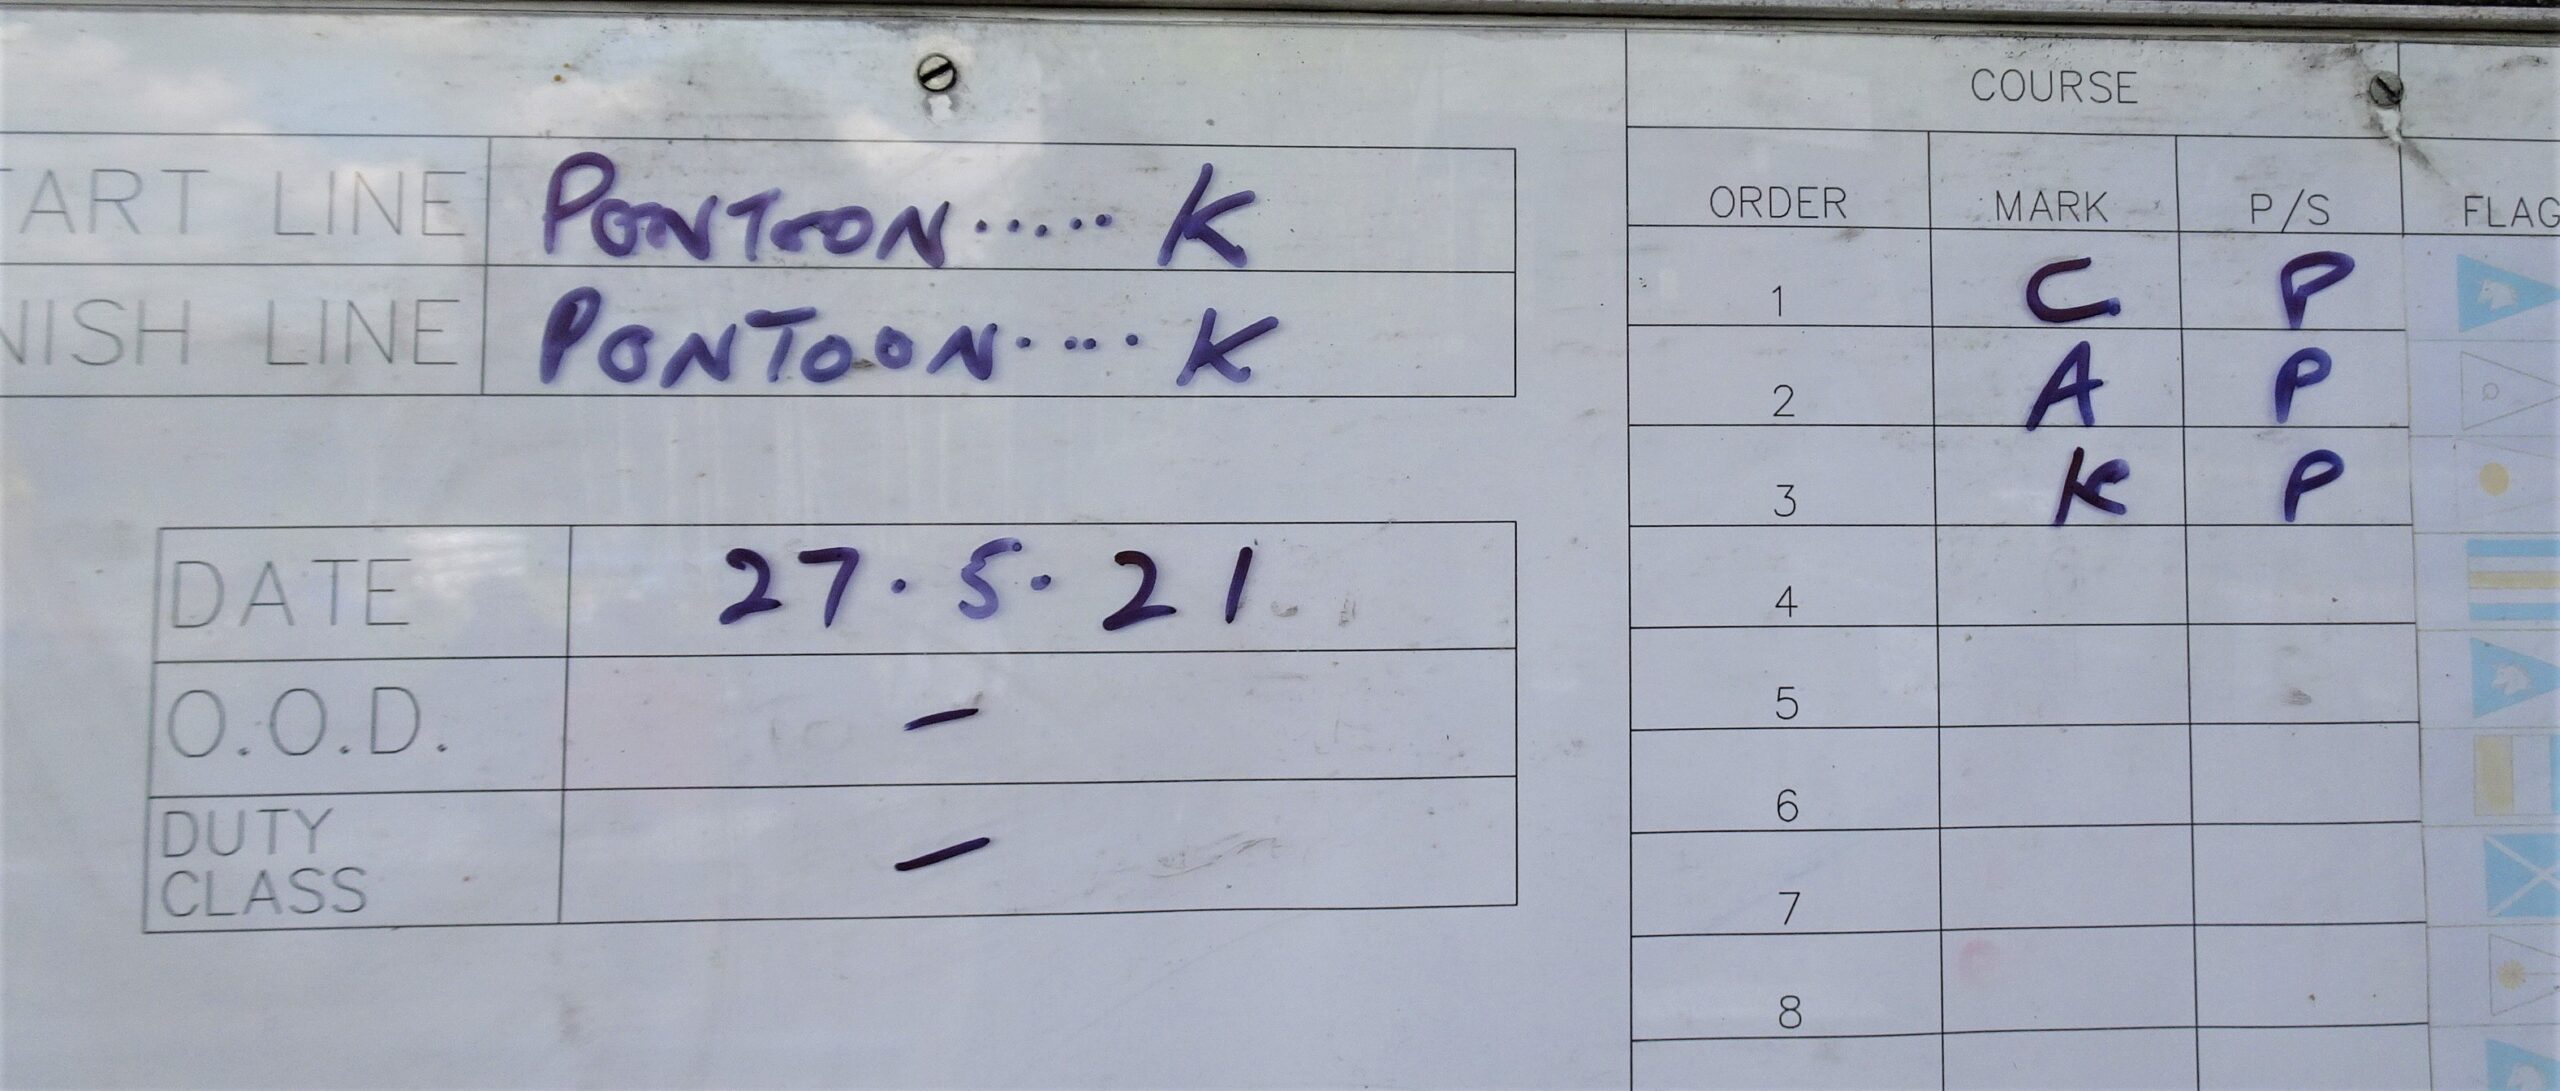 ART LINE PONTOON ..... K
NISH LINE PONTOON ..... K
DATE 27.5.21
O.O.D. –
DUTY CLASS –
COURSE
ORDER MARK P/S FLAG
1 C P
2 A P
3 K P
4
5
6
7
8